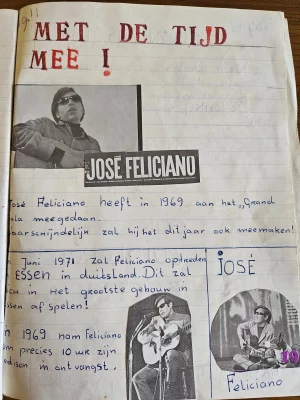 MET DE TIJD
MEE !
JOSÉ FELICIANO
José Feliciano heeft in 1969 aan het „Grand
meegedaan.
zal hij het dit jaar ook meemaken!
Juni 1971 zal Feliciano optreden
ESSEN in duitsland. Dit zal
in het grootste gebouw in
af spelen!
1969 nam Feliciano
precies 10 uur zijn
in ontvangst.
José
Feliciano